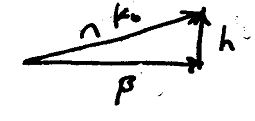 n k₀
h
β